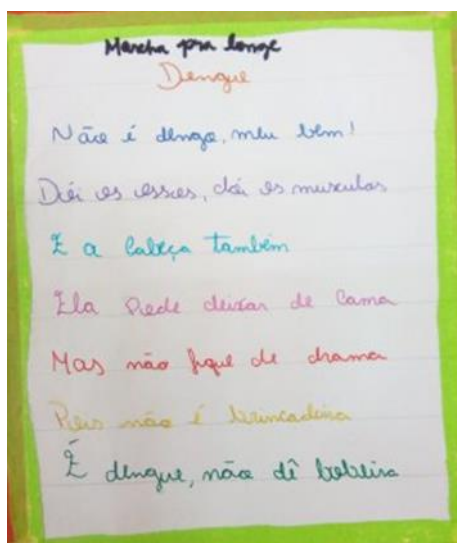 Marcha pra longe
Dengue
Não é dengo, meu bem!
Dói os ossos, dói os musculos
E a cabeça também
Ela Pode deixar de cama
Mas não fique de drama
Pois não é brincadeira
É dengue, não dê bobeira